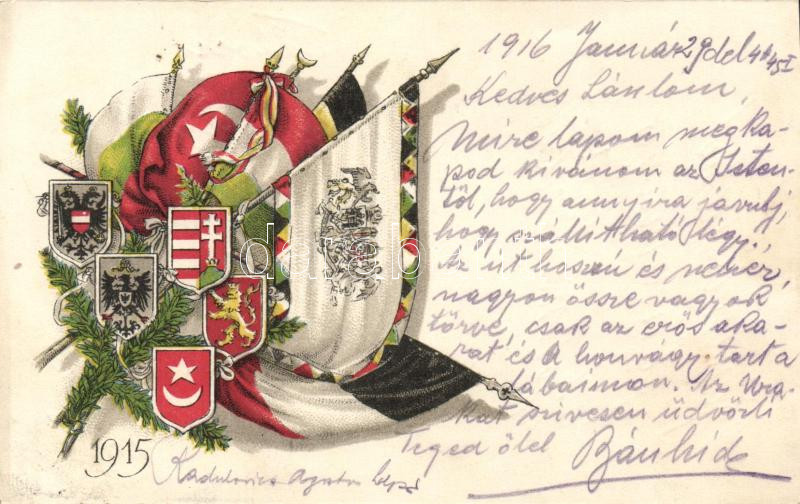 1916 Január 29 del
Kedves
Mire lapom megka-
pod kivánom az Isten-
től, hogy annyira javulj,
hogy szállitható légy.
Az út hosszú és nehéz,
nagyon össze vagyok
törve, csak az erős aka-
rat, és a honvágy tart a
lábaimon. Az Ura-
kat szivesen üdvözli
Téged ölel
1915